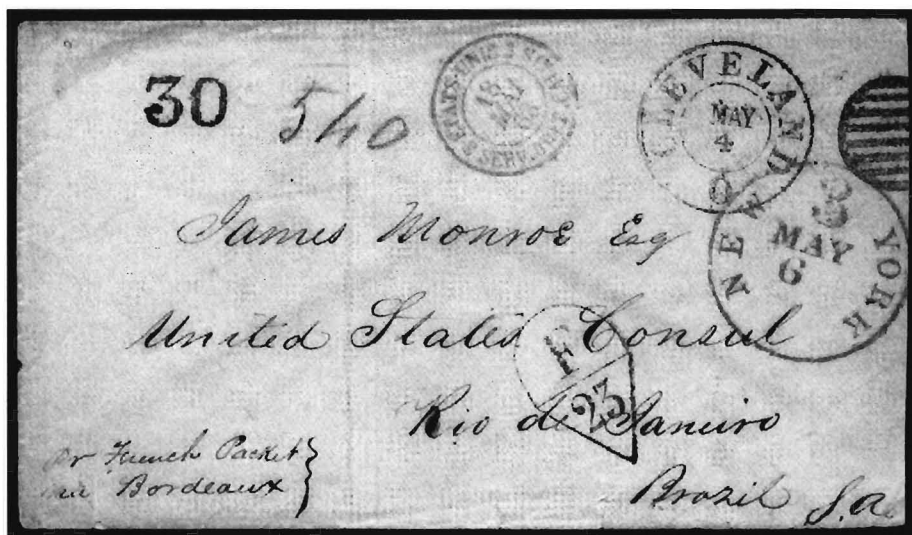 30
540
CLEVELAND O
MAY
4
NEW YORK
3
MAY
6
James Monroe Esq
United States Consul
23
Rio de Janeiro
Brazil S.A.
French Packet
Bordeaux